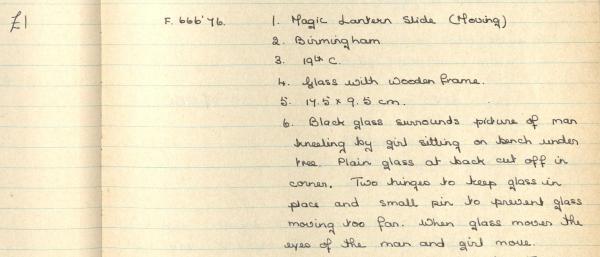 £1 F. 666'76. 1. Magic Lantern Slide (Moving)
2. Birmingham
3. 19th C.
4. Glass with wooden frame.
5. 17.5 x 9.5 cm.
6. Black glass surrounds picture of man
kneeling by girl sitting on bench under
tree. Plain glass at back cut off in
corner. Two hinges to keep glass in
place and small pin to prevent glass
moving too far. When glass moves the
eyes of the man and girl move.